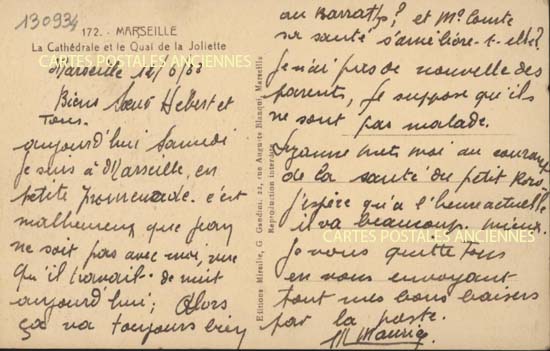 130934
172. - MARSEILLE
La Cathédrale et le Quai de la Joliette
CARTES POSTALES ANCIENNES
Marseille 12/6/53
Biens Hebert et
Tous.
aujourd'hui Samedi
je suis à Marseille, en
petite promenade. c'est
malheureux que jeany
ne soit pas avec moi, vue
qu'il travail de nuit
aujourd'hui; Alors
ça va toujours bien
Editions Mireille, G. Gandini, 22, rue Auguste Blanqui, Marseille
Reproduction interdite
au Barratts? et Mr Comte
sa santé s'améliore-t-elle?
Je n'ai pas de nouvelle des
parents, je suppose qu'ils
ne sont pas malade.
Lyanne mets moi au courant
de la santé du petit
j'espère qu'a l'heure actuelle
il va beaucoup mieux.
CARTES POSTALES ANCIENNES
Je vous quitte tous
en vous envoyant
tout mes bons baisers
par la poste.
Maurice